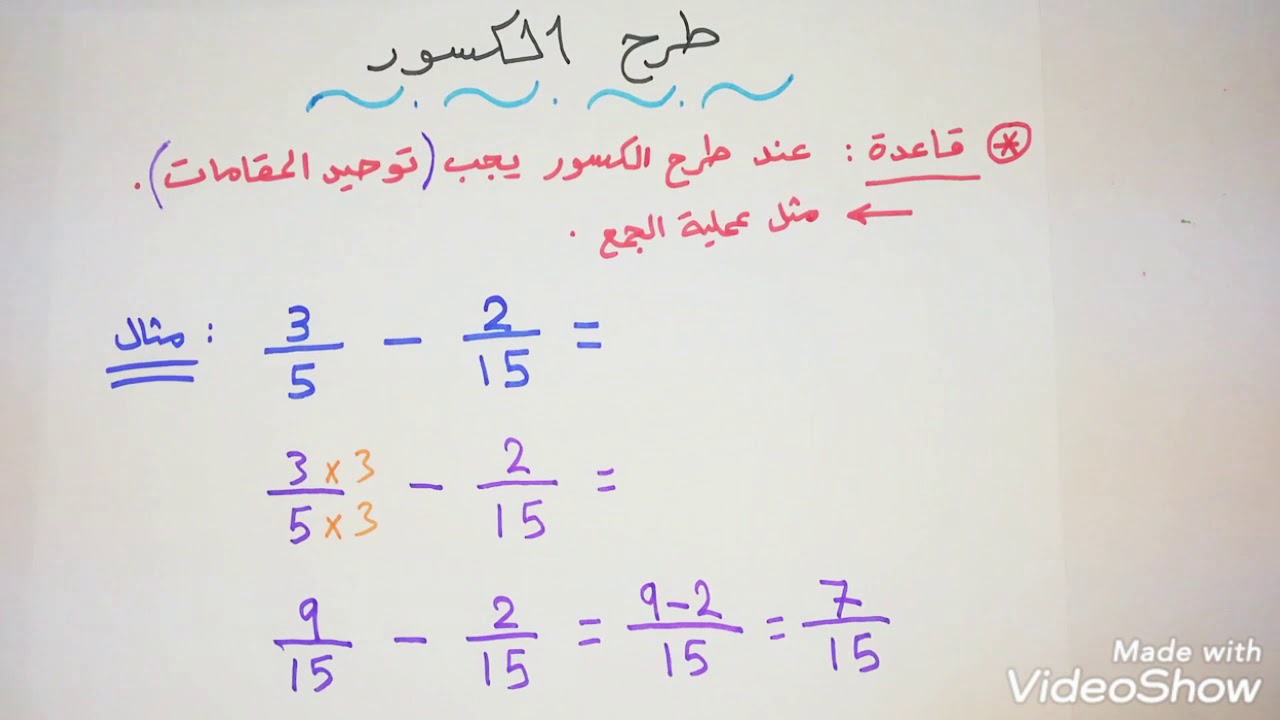 طرح الكسور
* قاعدة : عند طرح الكسور يجب (توحيد المقامات) .
← مثل عملية الجمع .
مثال : 3/5 - 2/15 =
3×3/5×3 - 2/15 =
9/15 - 2/15 = 9-2/15 = 7/15
Made with
VideoShow